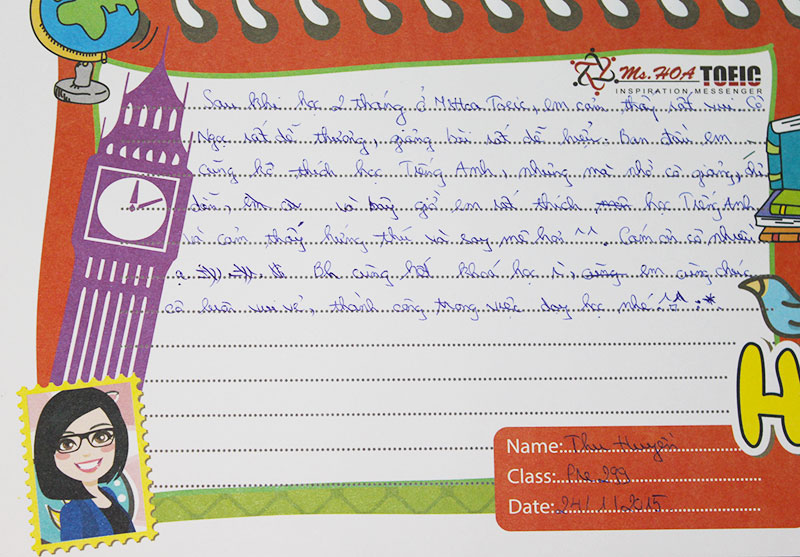 Ms. HOA TOEIC
INSPIRATION MESSENGER
Sau khi học 2 tháng ở MsHoa Toeic, em cảm thấy rất vui. Cô
Ngọc rất dễ thương, giảng bài rất dễ hiểu. Ban đầu em
cũng kô thích học Tiếng Anh, nhưng mà nhờ cô giảng, chỉ
dẫn, và bây giờ em rất thích học Tiếng Anh
và cảm thấy hứng thú và say mê hơi ^^. Cám ơn cô nhiều
ạ Bh cũng hết khoá học r, em cũng chúc
cô luôn vui vẻ, thành công trong việc dạy học nhé ^^ :*
H
Name: Thu Huyền
Class: Pre 299
Date: 24/11/2015